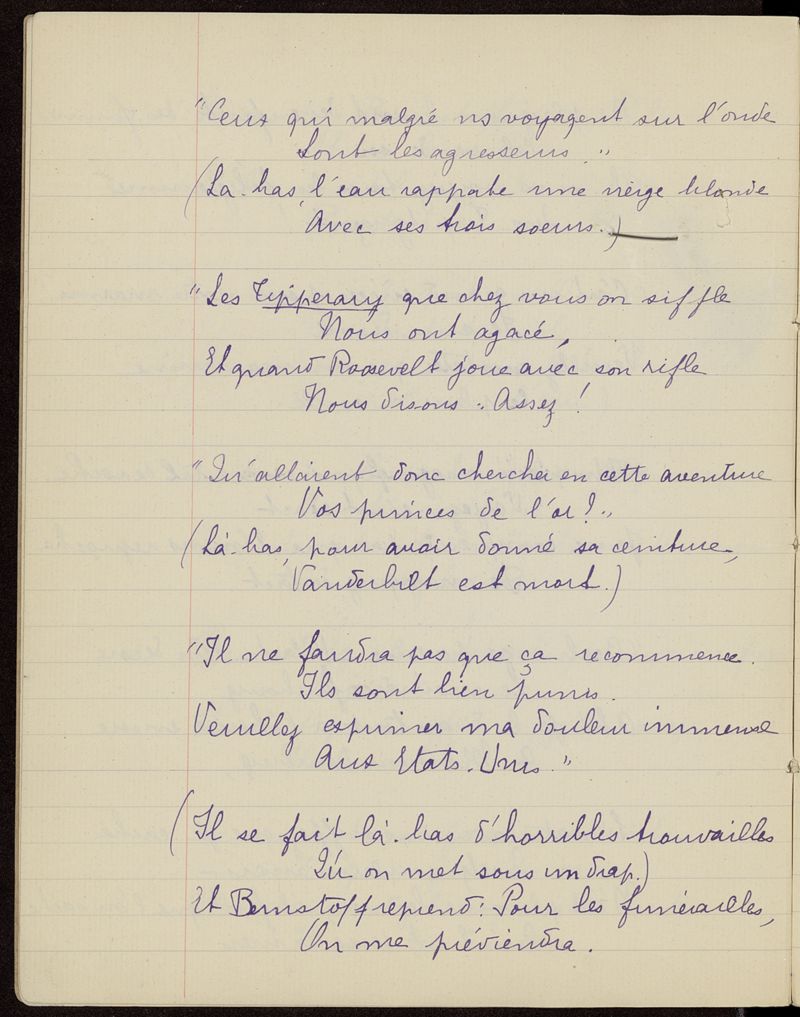 "Ceux qui malgré ns voyagent sur l'onde
Sont les agresseurs."
(Là-bas, l'eau rapporte une vierge blonde
Avec ses trois soeurs.)
"Les Tipperary que chez vous on siffle
Nous ont agacé,
Et quand Roosevelt joue avec son rifle
Nous disons : Assez !
"Qu'allaient donc chercher en cette aventure
Vos princes de l'or ?"
(Là-bas, pour avoir donné sa ceinture,
Vanderbilt est mort.)
"Il ne faudra pas que ça recommence.
Ils sont bien punis.
Veuillez exprimer ma douleur immense
Aux Etats-Unis."
(Il se fait là-bas d'horribles trouvailles
Qu'on met sous un drap.)
Et Bernstoff reprend : Pour les funérailles,
On me préviendra.